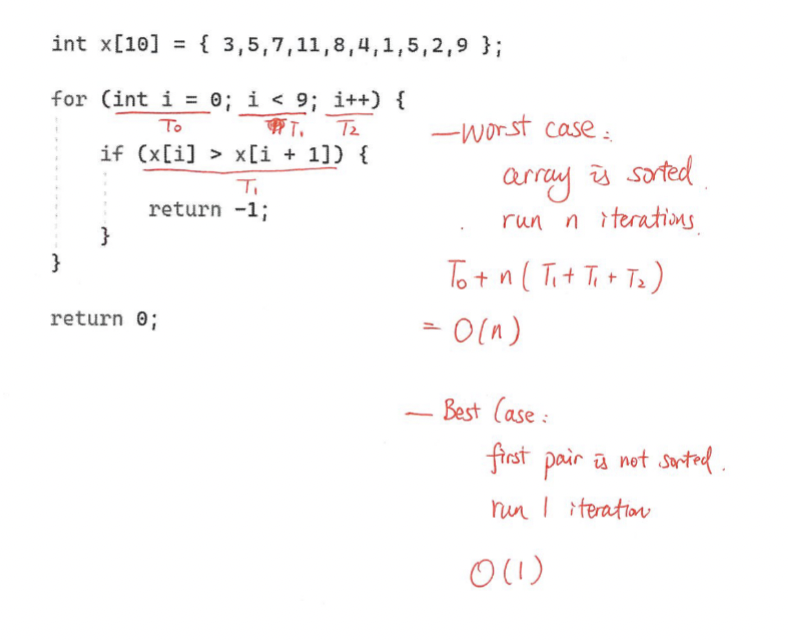 int x[10] = { 3,5,7,11,8,4,1,5,2,9 };
for (int i = 0; i < 9; i++) {
T₀ T₁ T₂
if (x[i] > x[i + 1]) {
T₁
return -1;
}
}
return 0;
— Worst case:
array is sorted.
run n iterations.
T₀ + n ( T₁ + T₁ + T₂ )
= O(n)
— Best Case:
first pair is not sorted.
run 1 iteration
O(1)